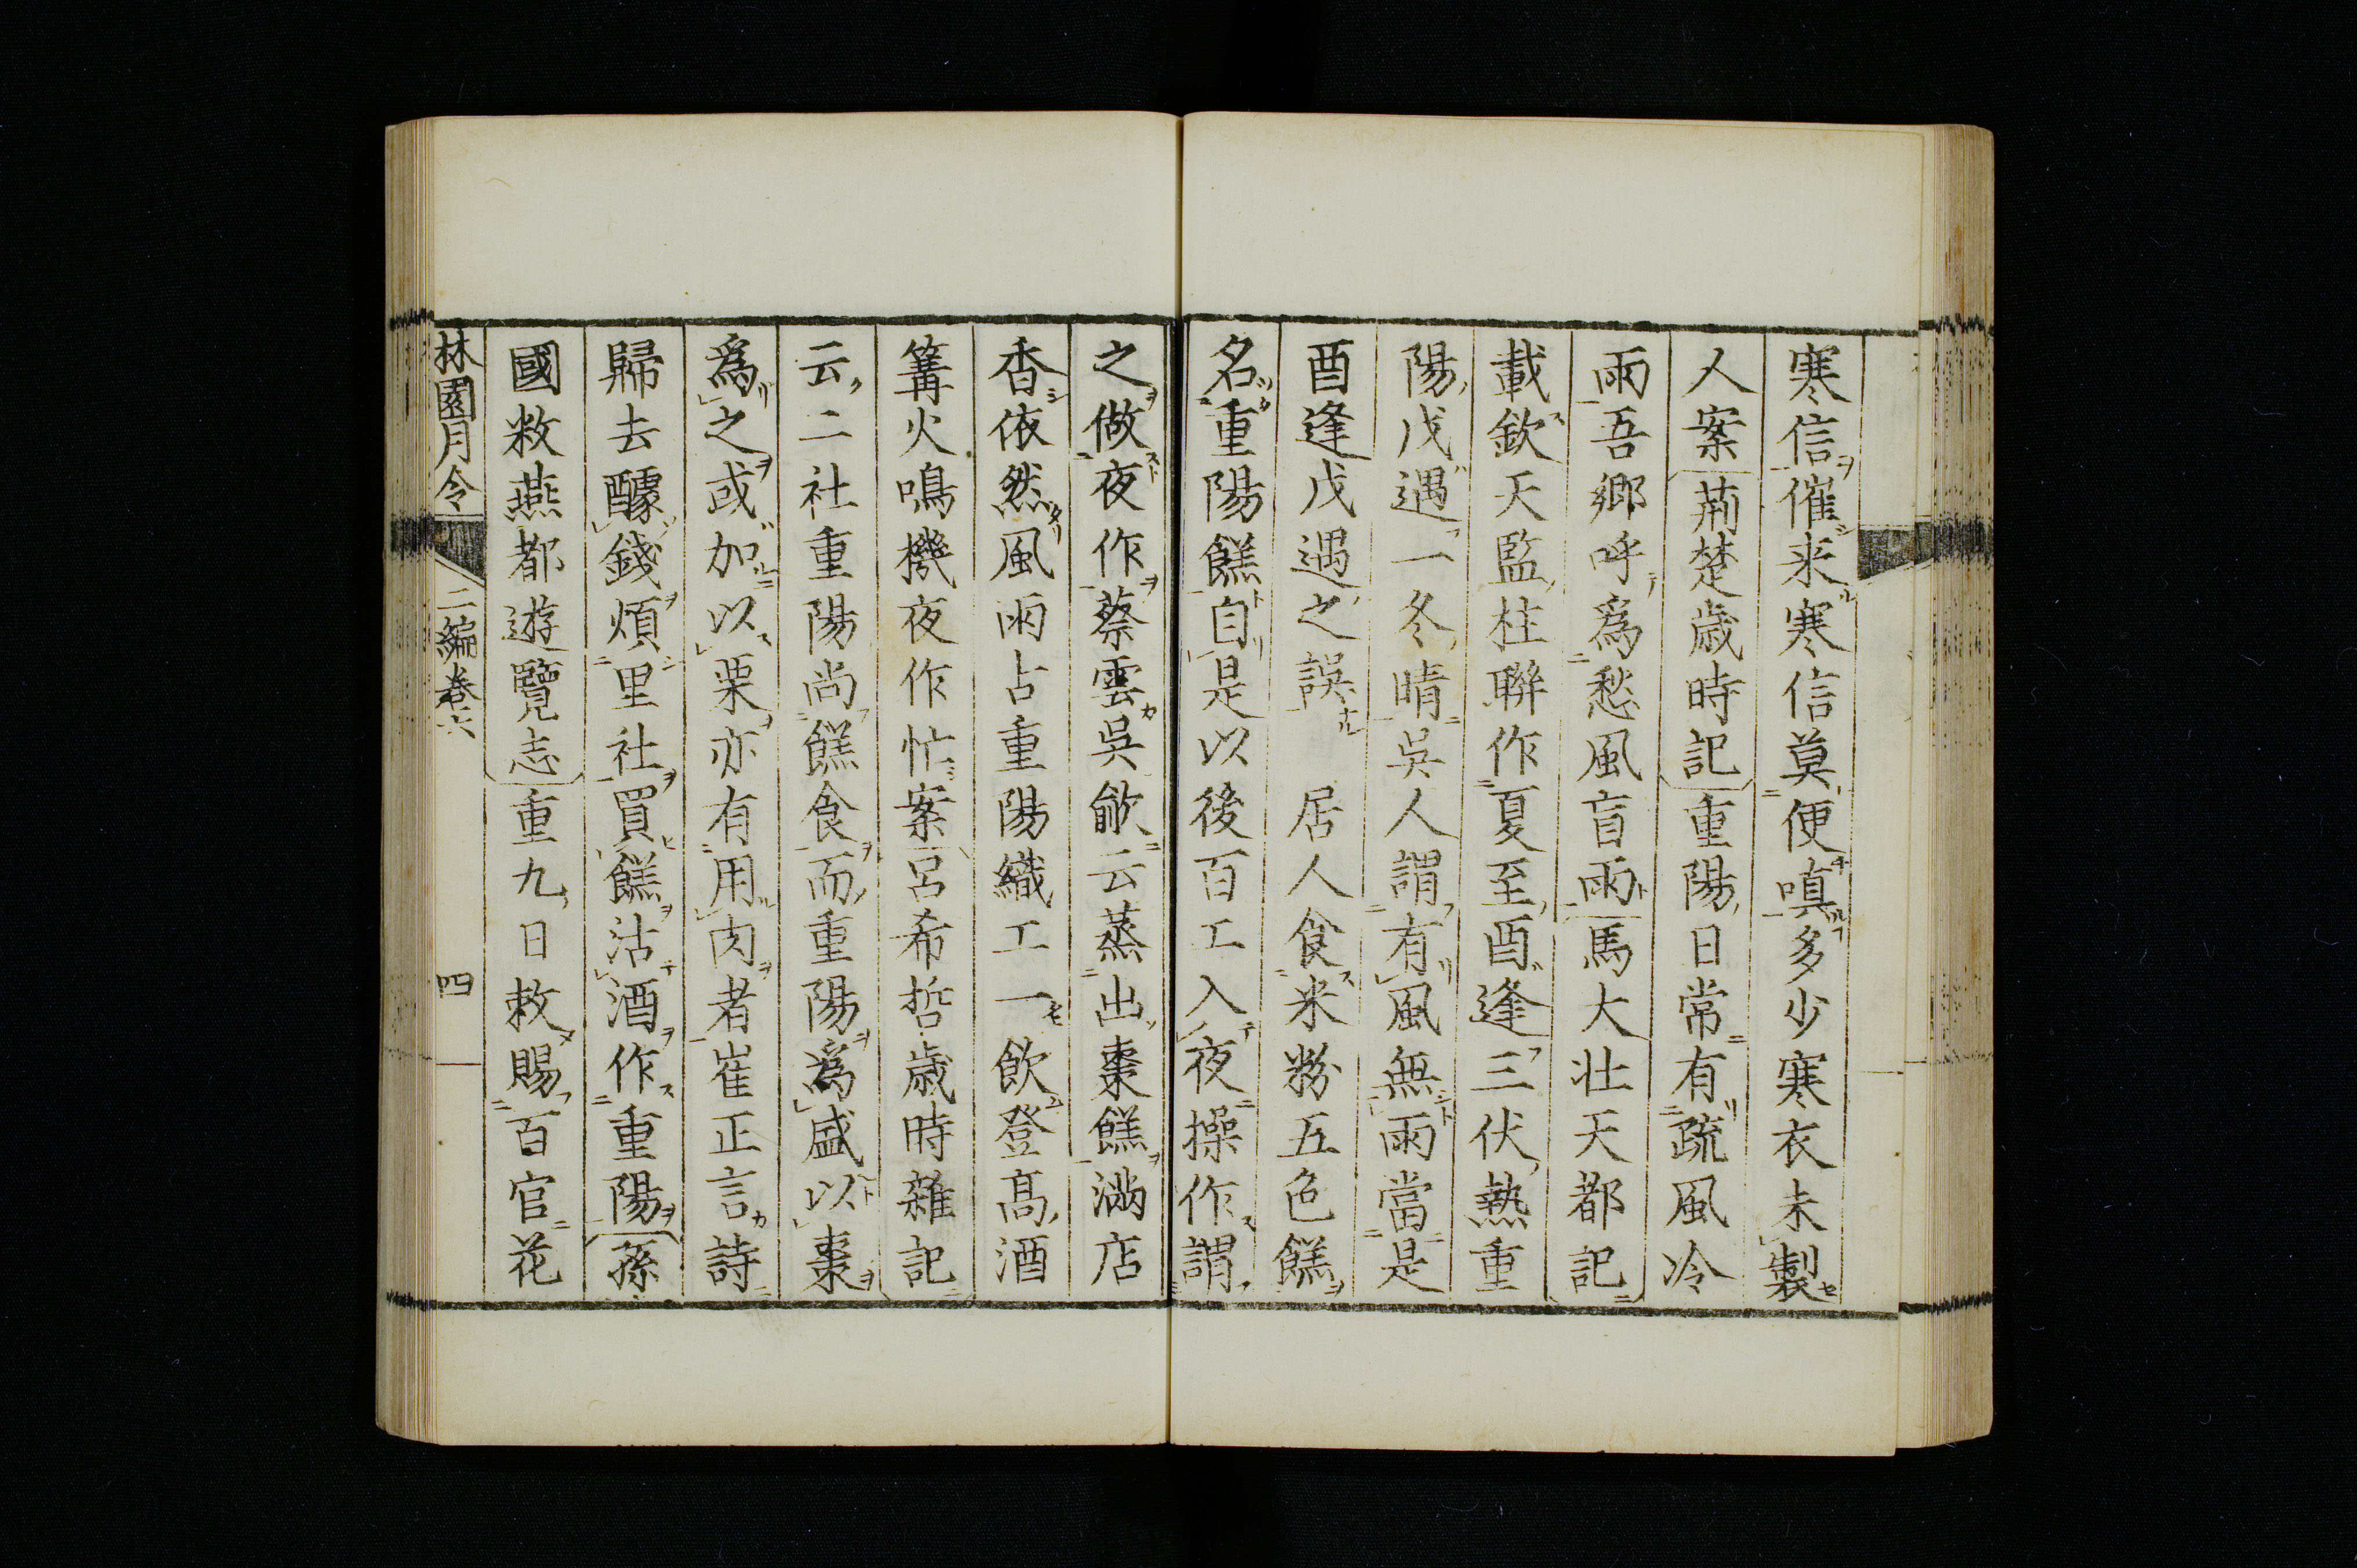 寒信催来寒信莫便嗔多少寒衣未製
人案荊楚歳時記重陽日常有疏風冷
雨吾鄉呼爲愁風盲雨馬大壮天都記
載欽天監柱聯作夏至酉逢三伏熱重
陽戊遇一冬晴吳人謂有風無雨當是
酉逢戊遇之誤　居人食米粉五色餻
名重陽餻自是以後百工入夜操作謂
之做夜作蔡雲吳歈云蒸出棗餻滿店
香依然風雨占重陽織工一飲登髙酒
篝火鳴機夜作忙案呂希哲歳時雜記
云二社重陽尚餻食而重陽爲盛以棗
爲之或加以栗亦有用肉者崔正言詩
歸去醵錢煩里社買餻沽酒作重陽孫
國敉燕都遊覽志重九日敕賜百官花
林園月令　二編卷六　四